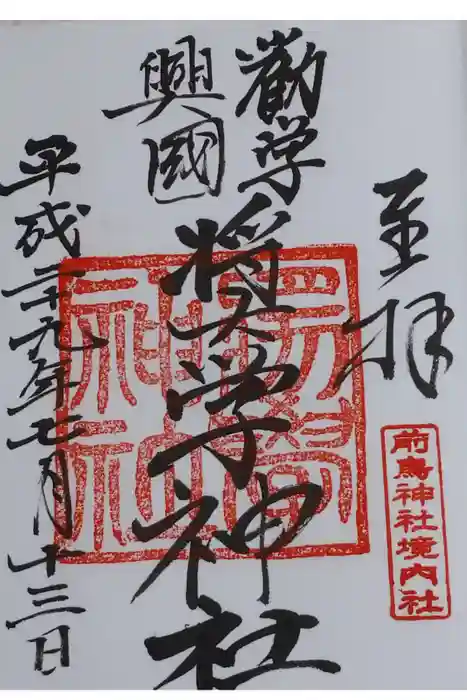 至拝
勧学
興國
奨学神社
平成二十九年七月十三日
前鳥神社境内社